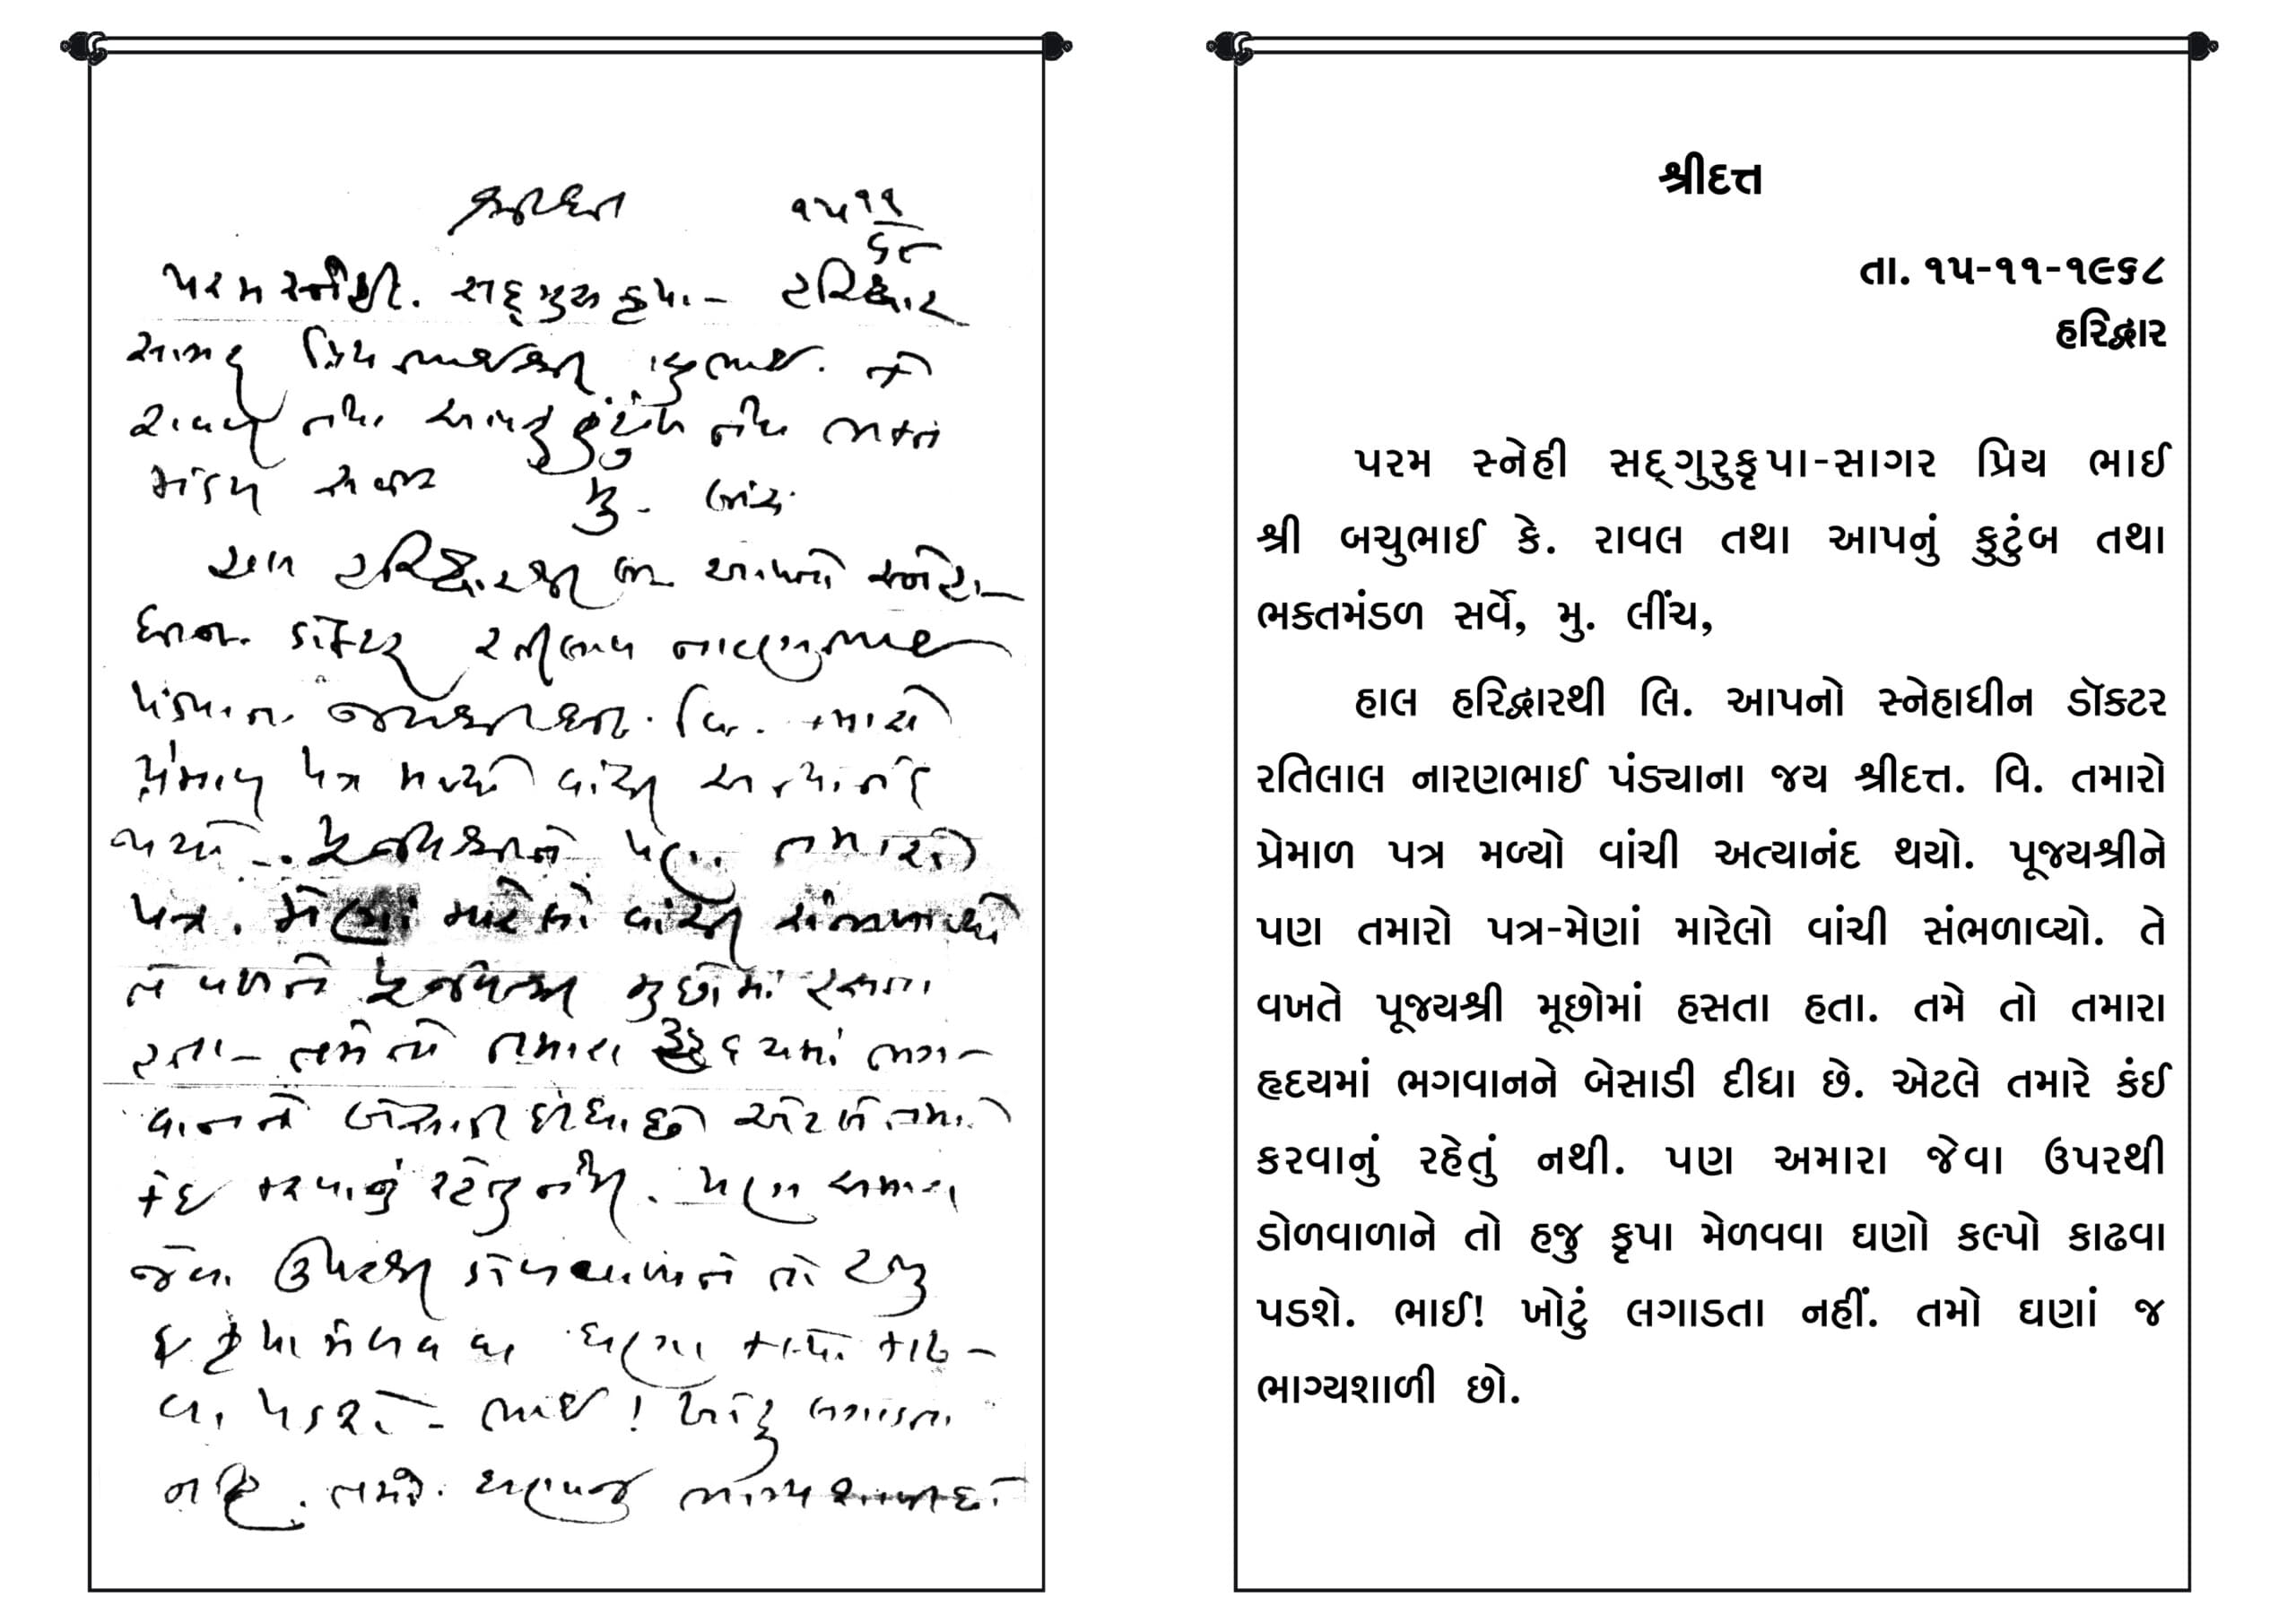 શ્રીદત્ત ૧૫ ૧૧
૬૮
પરમ સ્નેહી. સદ્ગુરુ કૃપા- હરિદ્વાર
સાગર પ્રિય ભાઈશ્રી બચુભાઈ. કે
રાવલ તથા આપનું કુટુંબ તથા ભક્ત
મંડળ સર્વે મુ. લીંચ
હાલ હરિદ્વારથી લિ. આપનો સ્નેહા-
ધીન ડૉક્ટર રતીલાલ નારણભાઈ
પંડ્યાના જયશ્રીદત્ત. વિ. તમારો
પ્રેમાળ પત્ર મળ્યો વાંચી અત્યાનંદ
થયો -. પૂજ્યશ્રીને પણ તમારો
પત્ર. મેણાં મારેલો વાંચી સંભળાવ્યો
તે વખતે પૂજ્યશ્રી મુછોમાં હસતા
હતા - તમે તો તમારા હૃદયમાં ભગ-
વાનને બેસાડી દીધા છે એટલે તમારે
કંઈ કરવાનું રહેતું નથી. પણ અમારા
જેવા ઉપરથી ડોળવાળાને તો હજુ
કૃપા મેળવવા ઘણા કલ્પો કાઢ-
વા પડશે - ભાઈ! ખોટું લગાડતા
નહિ. તમો. ઘણાજ ભાગ્યશાળી છો
શ્રીદત્ત
તા. ૧૫-૧૧-૧૯૬૮
હરિદ્વાર
પરમ સ્નેહી સદ્ગુરુકૃપા-સાગર પ્રિય ભાઈ
શ્રી બચુભાઈ કે. રાવલ તથા આપનું કુટુંબ તથા
ભક્તમંડળ સર્વે, મુ. લીંચ,
હાલ હરિદ્વારથી લિ. આપનો સ્નેહાધીન ડૉક્ટર
રતિલાલ નારણભાઈ પંડ્યાના જય શ્રીદત્ત. વિ. તમારો
પ્રેમાળ પત્ર મળ્યો વાંચી અત્યાનંદ થયો. પૂજ્યશ્રીને
પણ તમારો પત્ર-મેણાં મારેલો વાંચી સંભળાવ્યો. તે
વખતે પૂજ્યશ્રી મૂછોમાં હસતા હતા. તમે તો તમારા
હૃદયમાં ભગવાનને બેસાડી દીધા છે. એટલે તમારે કંઈ
કરવાનું રહેતું નથી. પણ અમારા જેવા ઉપરથી
ડોળવાળાને તો હજુ કૃપા મેળવવા ઘણો કલ્પો કાઢવા
પડશે. ભાઈ! ખોટું લગાડતા નહીં. તમો ઘણાં જ
ભાગ્યશાળી છો.